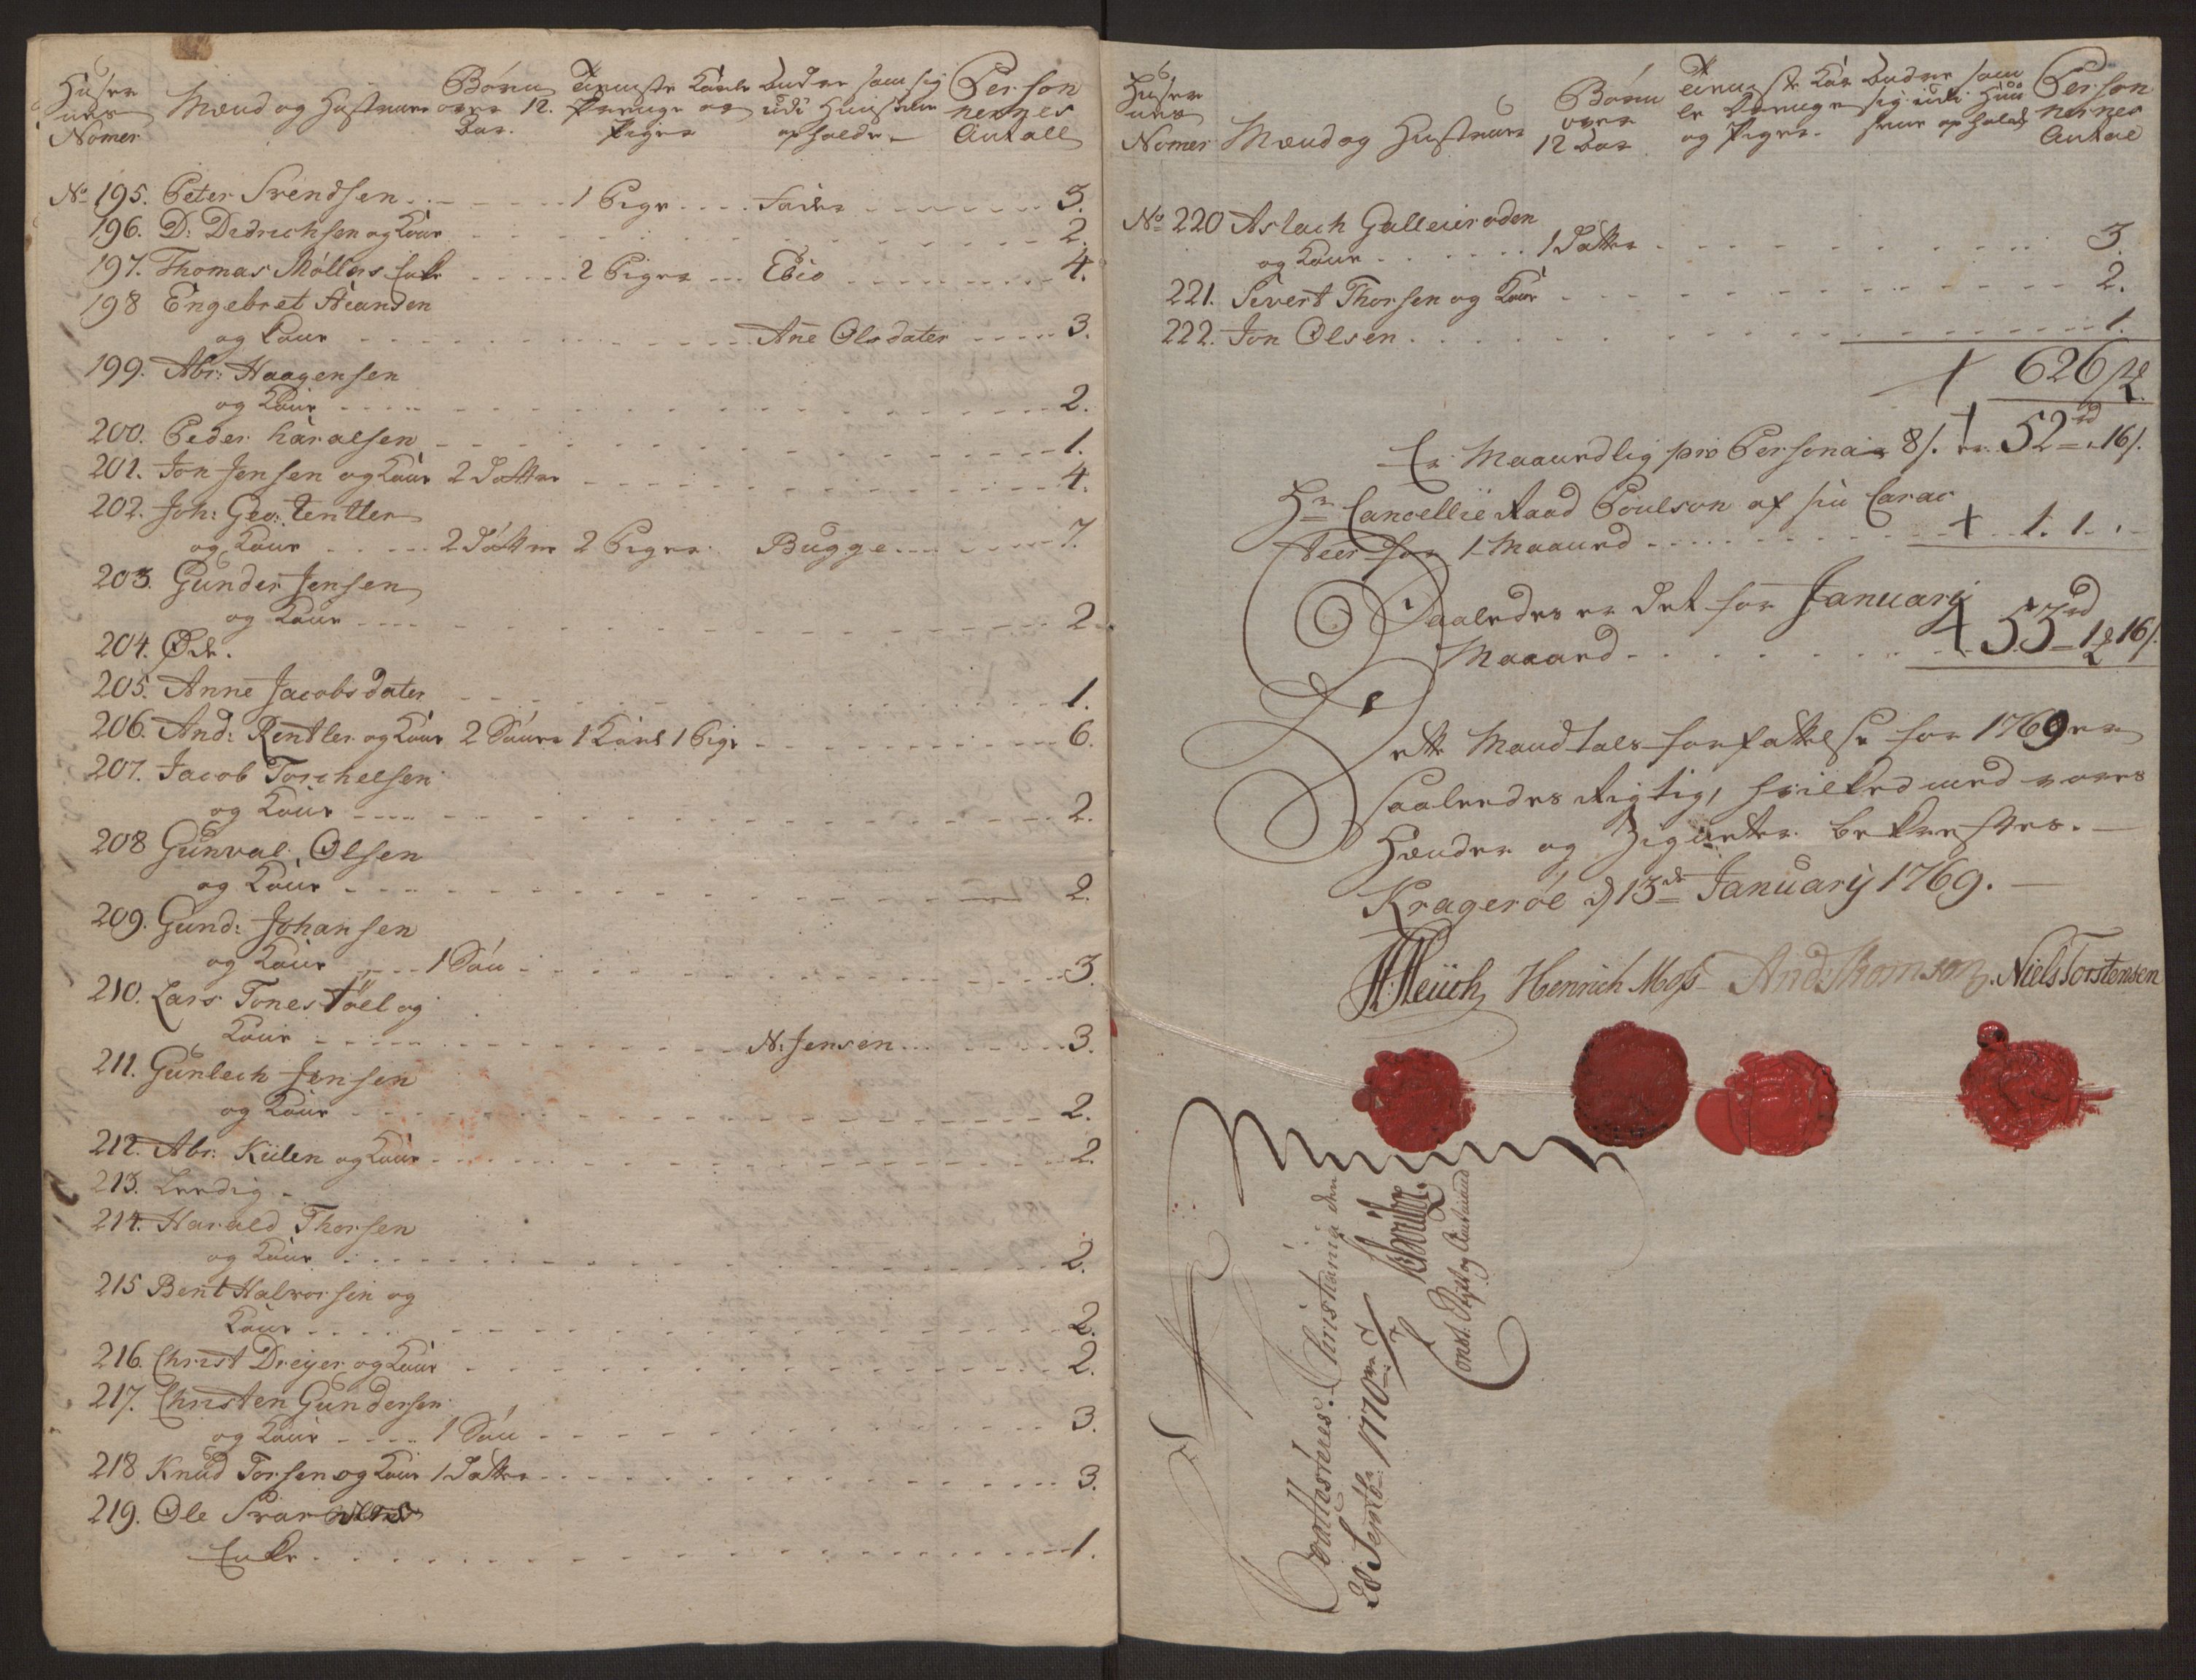 Huser
nes
Nomer
Mænd og Hustruer
Børn
over 12.
Aar.
Tieneste Karle
Drenge og
Piger
Andre som sig
udi Huusene
opholde
Person
nernes
Antall
No 195. Peter Svendsen 1 Pige Fader 3.
196. D: Didrichsen og Kone 2.
197. Thomas Møllers Enke 2 Piger Ebio 4.
198 Engebret Steansen
og Kone Ane Olsdater 3.
199. Abr: Haagensen
og Kone 2.
200. Peder Haralsen 1.
201. Jon Jensen og Kone 2 Døttre 4.
202. Joh: Geo: Tentler
og Kone 2 Døttre 2 Piger Bugge 7.
203. Gunder Jensen
og Kone 2
204. Øde.
205. Anne Jacobsdater 1.
206. And: Rentler og Kone 2 Sønner 1 Karl 1 Pige 6.
207. Jacob Torchelsen
og Kone 2.
208 Gunval Olsen
og Kone 2.
209. Gund: Johansen
og Kone 1 Søn 3.
210. Lars Tonestöel og
Kone N: Jensen 3.
211. Gunlech Jensen
og Kone 2.
212. Abr: Kiilen og Kone 2.
213. Leedig
214. Harald Thorsen
og Kone 2.
215 Bent Halvorsen og
Kone 2.
216. Christ Dreyer og Kone 2.
217. Christen Gundersen
og Kone 1 Søn 3.
218 Knud Torsen og Kone 1 Datter 3.
219. Ole
Enke 1.
Huser
nes
Nomer
Mænd og Hustruer
Børn
over
12 Aar
Tieneste Kar
le Drenge
og Piger.
Andre som
sig udi Huu
sene opholde
Person
nernes
Antal
No 220 Aslach Galleioden
og Kone 1 Datter 3.
221. Sivert Thorsen og Kone 2.
222. Jon Olsen 1.
626
Er Maanedlig pro Persona a 8 s. er 52 rd 16 s.
Hr Cancellie Raad Poulson af sin Carac
teer for 1 Maaned 1. 1.
Saaledes er det for January
Maaned 53 rd 1 16 s.
Dette Mandtals forfattelse for 1769 er
saaledes Rigtig, hvilked med vores
Hænder og Zigneter bekræftes.
Kragerøe d 13de January 1769.
H Heuch Henrich Moss And: Thomson Niels Torstensen
Christiania den
28 Septbr: 1770
Const: